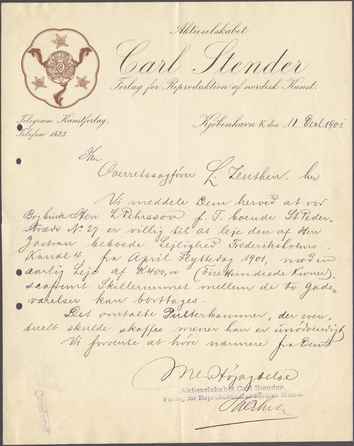 Aktieselskabet
Carl Stender
Forlag for Reproduktion af nordisk Kunst.
Telegram: Kunstforlag.
Telefon 1633
Kjøbenhavn K. den 11 1901
Herr
Overretssagfører L. Zeuthen. her
Vi meddele Dem herved at vor
Bogbinder Hr L. Pehrsson f. T. boende St Peder-
stræde No 27 er villig til at leje den af Herr
beboede Lejlighed Frederiksholms
Kanal 4. fra April Flyttedag 1901, mod en
aarlig Leje af Kr 400,00 (Firehundrede Kroner)
saafremt Skillerummet mellem de to Gade-
værelser kan borttages.
Det omtalte Pulterkammer, der even-
tuelt skulde skaffes mener han er unødvendigt
Vi forvente at høre nærmere fra Dem
Med Højagtelse
Aktieselskabet Carl Stender.
Forlag for Reproduktion af nordisk Kunst.